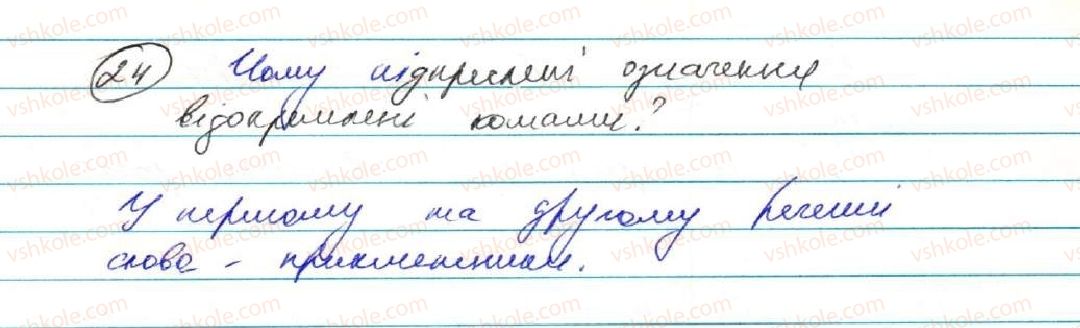 24 Чому підкреслені означення
відокремлені комами?
У першому та другому реченні
слова - прикметники.